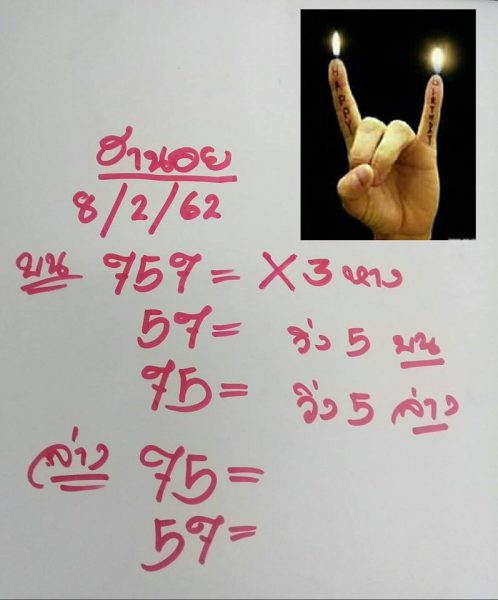 HAPPY
BIRTHDAY
ฮานอย
8/2/62
บน 757 = X 3 หาง
57 = วิ่ง 5 บน
75 = วิ่ง 5 ล่าง
ล่าง 75 =
57 =